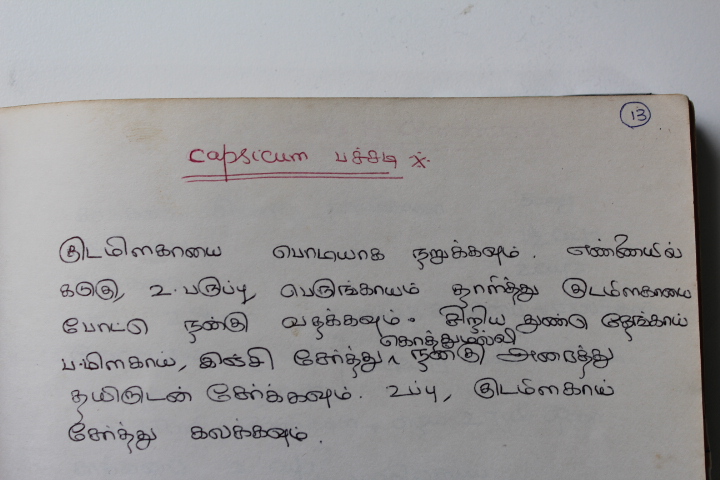 13
Capsicum பச்சடி
குடமிளகாயை பொடியாக நறுக்கவும். எண்ணெயில்
கடுகு, உ.பருப்பு, பெருங்காயம் தாளித்து குடமிளகாயை
போட்டு நன்கு வதக்கவும். சிறிய துண்டு தேங்காய்
ப.மிளகாய், இஞ்சி சேர்த்து, கொத்துமல்லி நன்கு அரைத்து
தயிருடன் சேர்க்கவும். உப்பு, குடமிளகாய்
சேர்த்து கலக்கவும்.